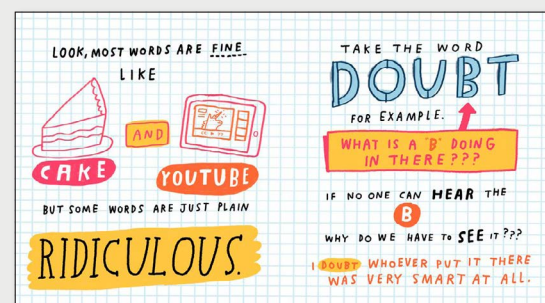 LOOK, MOST WORDS ARE FINE
LIKE
CAKE
AND
YOUTUBE
BUT SOME WORDS ARE JUST PLAIN
RIDICULOUS.
TAKE THE WORD
DOUBT
FOR EXAMPLE.
WHAT IS A "B" DOING
IN THERE???
IF NO ONE CAN HEAR THE
B
WHY DO WE HAVE TO SEE IT???
I DOUBT WHOEVER PUT IT THERE
WAS VERY SMART AT ALL.